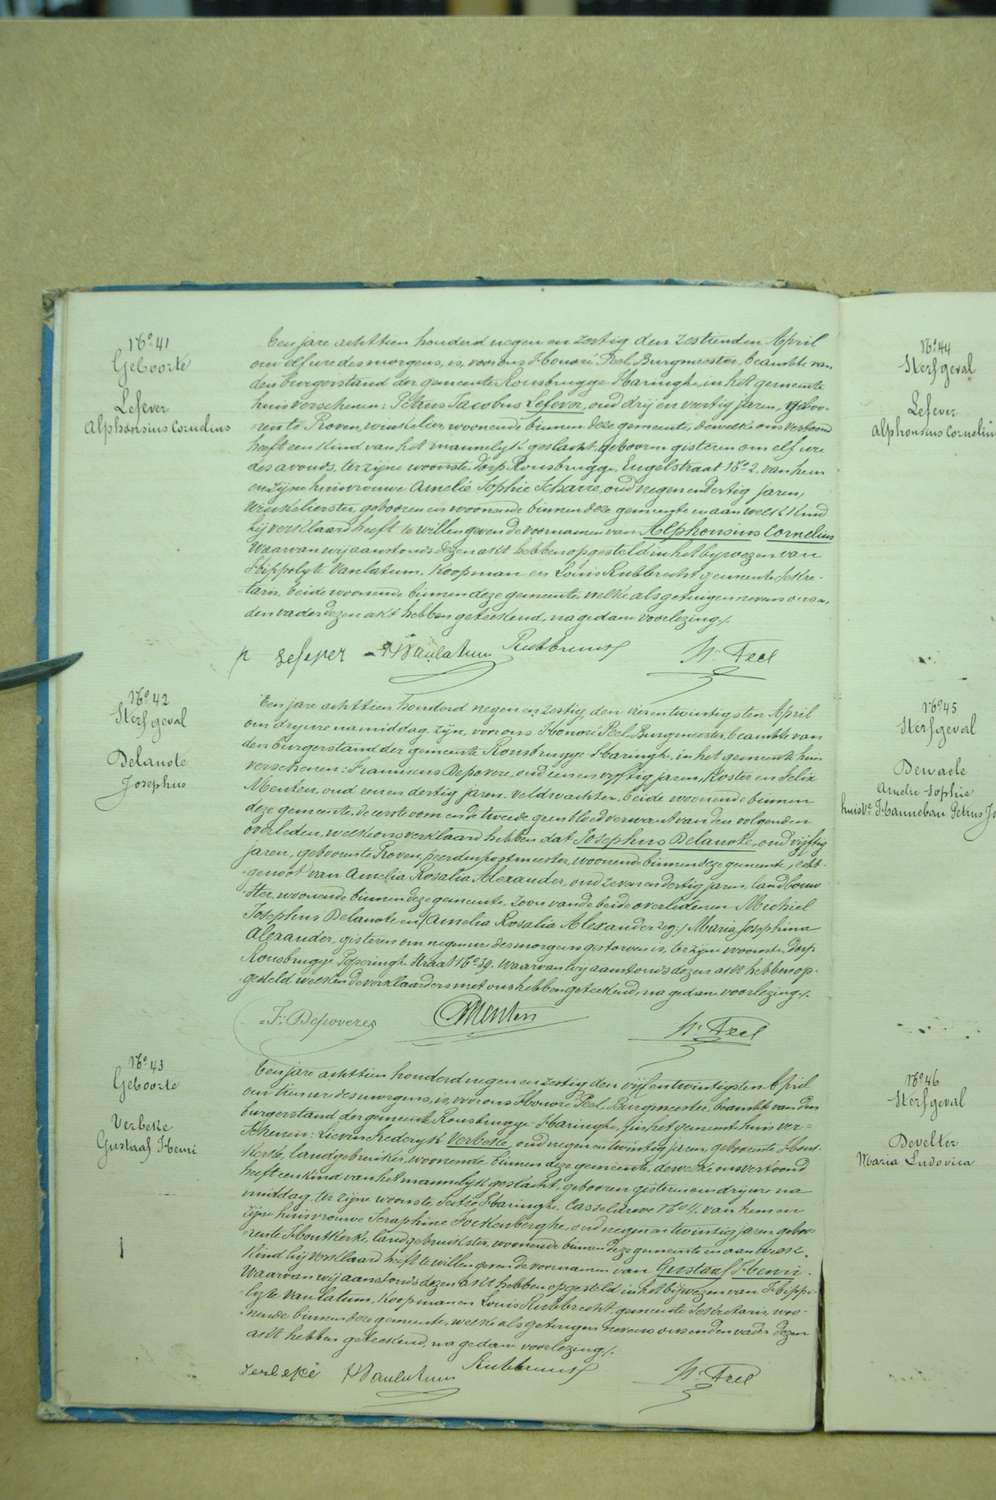 No 41
Geboorte
Lefever
Alphonsius Cornelius
Een jare achttien honderd negen en zestig den zestienden April
om elf ure des morgens, is, voor ons Honoré Feel, Burgmeester, beambte van
den burgerstand der gemeente Rousbrugge Haringhe, in het gemeente
huis verschenen: Petrus Jacobus Lefever, oud drij en veertig jaren, geboo-
ren te Proven, winkelier, woonende binnen deze gemeente, dewelke ons vertoond
heeft een kind van het mannelyk geslacht, gebooren gisteren om elf ure
des avonds, ter zijne woonste, dorp Rousbrugge, Engelstraat No 2, van hem
en zijne huisvrouwe Amelie Sophie Scharre, oud negen en dertig jaren,
winkelierster, gebooren en woonende binnen deze gemeente en aan welk kind
hij verklaard heeft te willen geven de voornamen van Alphonsius Cornelius
Waarvan wij aanstonds dezen akt hebben opgesteld in het bijwezen van
Hippolyte Vanlatum, koopman en Louis Rubbrecht, gemeente sekre-
taris, beide woonende binnen deze gemeente, welke als getuigen nevens ons en
den vader dezen akt hebben geteekend, na gedane voorlezing.
p Lefever HVanlatum Rubbrecht H. Feel
No 42
Sterfgeval
Delanote
Josephus
Een jare achttien honderd negen en zestig den vier en twintigsten April
om drij ure namiddag, zijn, voor ons Honoré Feel, Burgmeester, beambte van
den burgerstand der gemeente Rousbrugge Haringhe, in het gemeente huis
verschenen: Franciscus Depovere, oud een en vyftig jaren, koster en Felix
Menten, oud een en dertig jaren, veldwachter, beide woonende binnen
deze gemeente, de eerste oom en de tweede geen bloedverwant van den volgenden
overleden, welke ons verklaard hebben dat Josephus Delanote, oud vijftig
jaren, geboren te Proven, peerdenpostmeester, woonende binnen deze gemeente, echt-
genoot van Amelia Rosalia Alexander, oud zeven en dertig jaren, landbouw-
ster, woonende binnen deze gemeente, zoon van de beide overledenen Michiel
Josephus Delanote en (Amelia Rosalia Alexander zeg:) Maria Josephina
Alexander, gisteren om negen ure des morgens gestorven is, ter zijne woonste, dorp
Rousbrugge, Poperingh straat No 39. Waarvan wy aanstonds dezen akt hebben op-
gesteld welken de verklaarders met ons hebben geteekend, na gedane voorlezing.
F. Depoveres Menten H. Feel
No 43
Geboorte
Verbeke
Gustaaf Henri
Een jare achttien honderd negen en zestig den vijf en twintigsten April
om tien ure des morgens, is, voor ons Honoré Feel, Burgmeester, beambte van den
burgerstand der gemeente Rousbrugge Haringhe, in het gemeente huis ver-
schenen: Lieven Frederyk Verbeke, oud negen en twintig jaren, geboren te Hout-
kerke, landgebruiker, woonende binnen deze gemeente, dewelke ons vertoond
heeft een kind van het mannelyk geslacht, gebooren gisteren om drij ure na
middag, ter zijne woonste, sectie Haringhe, No 4, van hem en
zijne huisvrouwe Seraphine Fockenberghe, oud negen en twintig jaren, geboo-
ren te Houtkerke, landgebruikster, woonende binnen deze gemeente en aan welk
kind hij verklaard heeft te willen geven de voornamen van Gustaaf Henri.
Waarvan wij aanstonds dezen akt hebben opgesteld in het bijwezen van Hippo-
lyte Vanlatum, koopman en Louis Rubbrecht, gemeente sekretaris, woo-
nende binnen deze gemeente, welke als getuigen nevens ons en den vader dezen
akt hebben geteekend, na gedane voorlezing.
Verbeke HVanlatum Rubbrecht H. Feel
No 44
Sterfgeval
Lefever
Alphonsius Cornelius
No 45
Sterfgeval
Dewaele
Amelie Sophie
huisve Hannebau Petrus Jo
No 46
Sterfgeval
Develter
Maria Ludovica